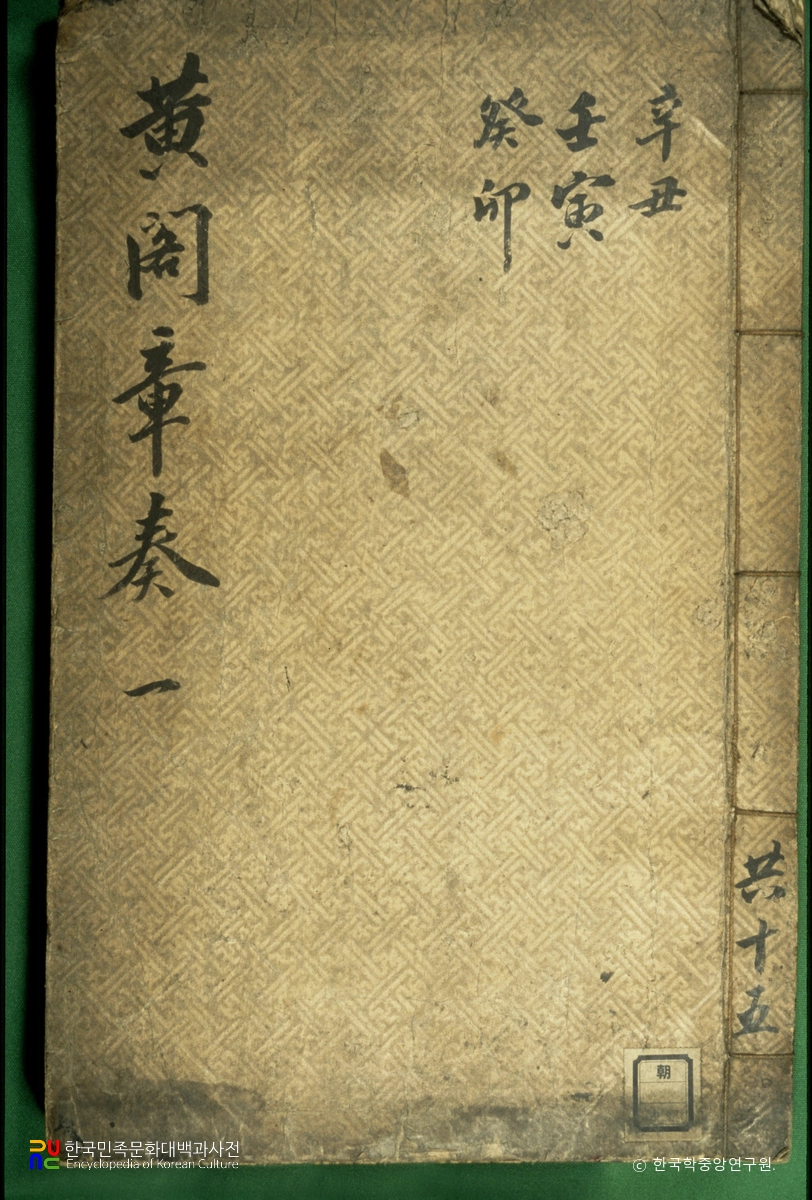 辛丑
壬寅
癸卯
黃閣章奏 一
共十五
朝
한국민족문화대백과사전
Encyclopedia of Korean Culture
© 한국학중앙연구원.